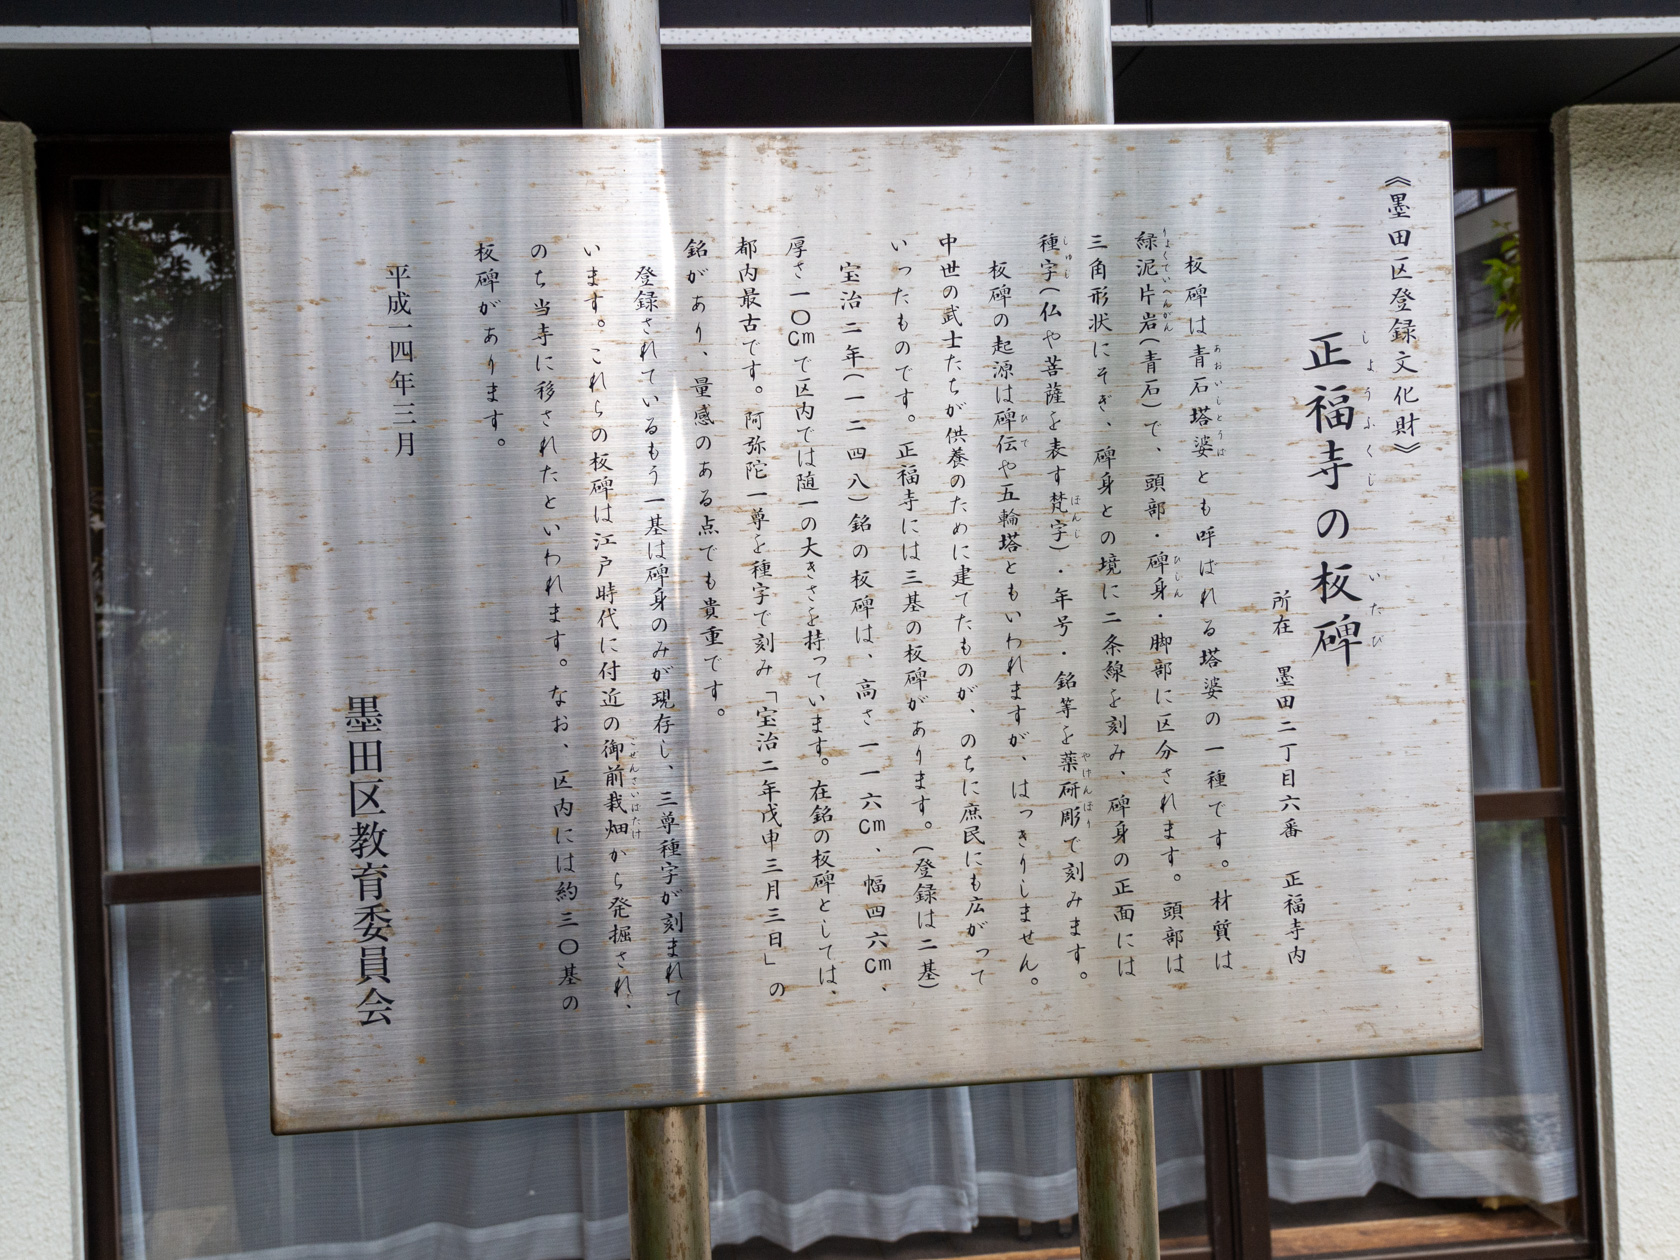 《墨田区登録文化財》
正福寺の板碑
しょうふくじ いたび
所在 墨田二丁目六番 正福寺内
板碑は青石塔婆とも呼ばれる塔婆の一種です。材質は
あおいしとうば
緑泥片岩(青石)で、頭部・碑身・脚部に区分されます。頭部は
りょくでいへんがん ひしん
三角形状にそぎ、碑身との境に二条線を刻み、碑身の正面には
種字(仏や菩薩を表す梵字)・年号・銘等を薬研彫で刻みます。
しゅじ ぼんじ やげんぼり
板碑の起源は碑伝や五輪塔ともいわれますが、はっきりしません。
ひで
中世の武士たちが供養のために建てたものが、のちに庶民にも広がって
いったものです。正福寺には三基の板碑があります。(登録は二基)
宝治二年(一二四八)銘の板碑は、高さ一一六cm、幅四六cm、
厚さ一〇cmで区内では随一の大きさを持っています。在銘の板碑としては、
都内最古です。阿弥陀一尊を種字で刻み「宝治二年戊申三月三日」の
銘があり、量感のある点でも貴重です。
登録されているもう一基は碑身のみが現存し、三尊種字が刻まれて
います。これらの板碑は江戸時代に付近の御前栽畑から発掘され、
ごせんさいはたけ
のち当寺に移されたといわれます。なお、区内には約三〇基の
板碑があります。
平成一四年三月
墨田区教育委員会